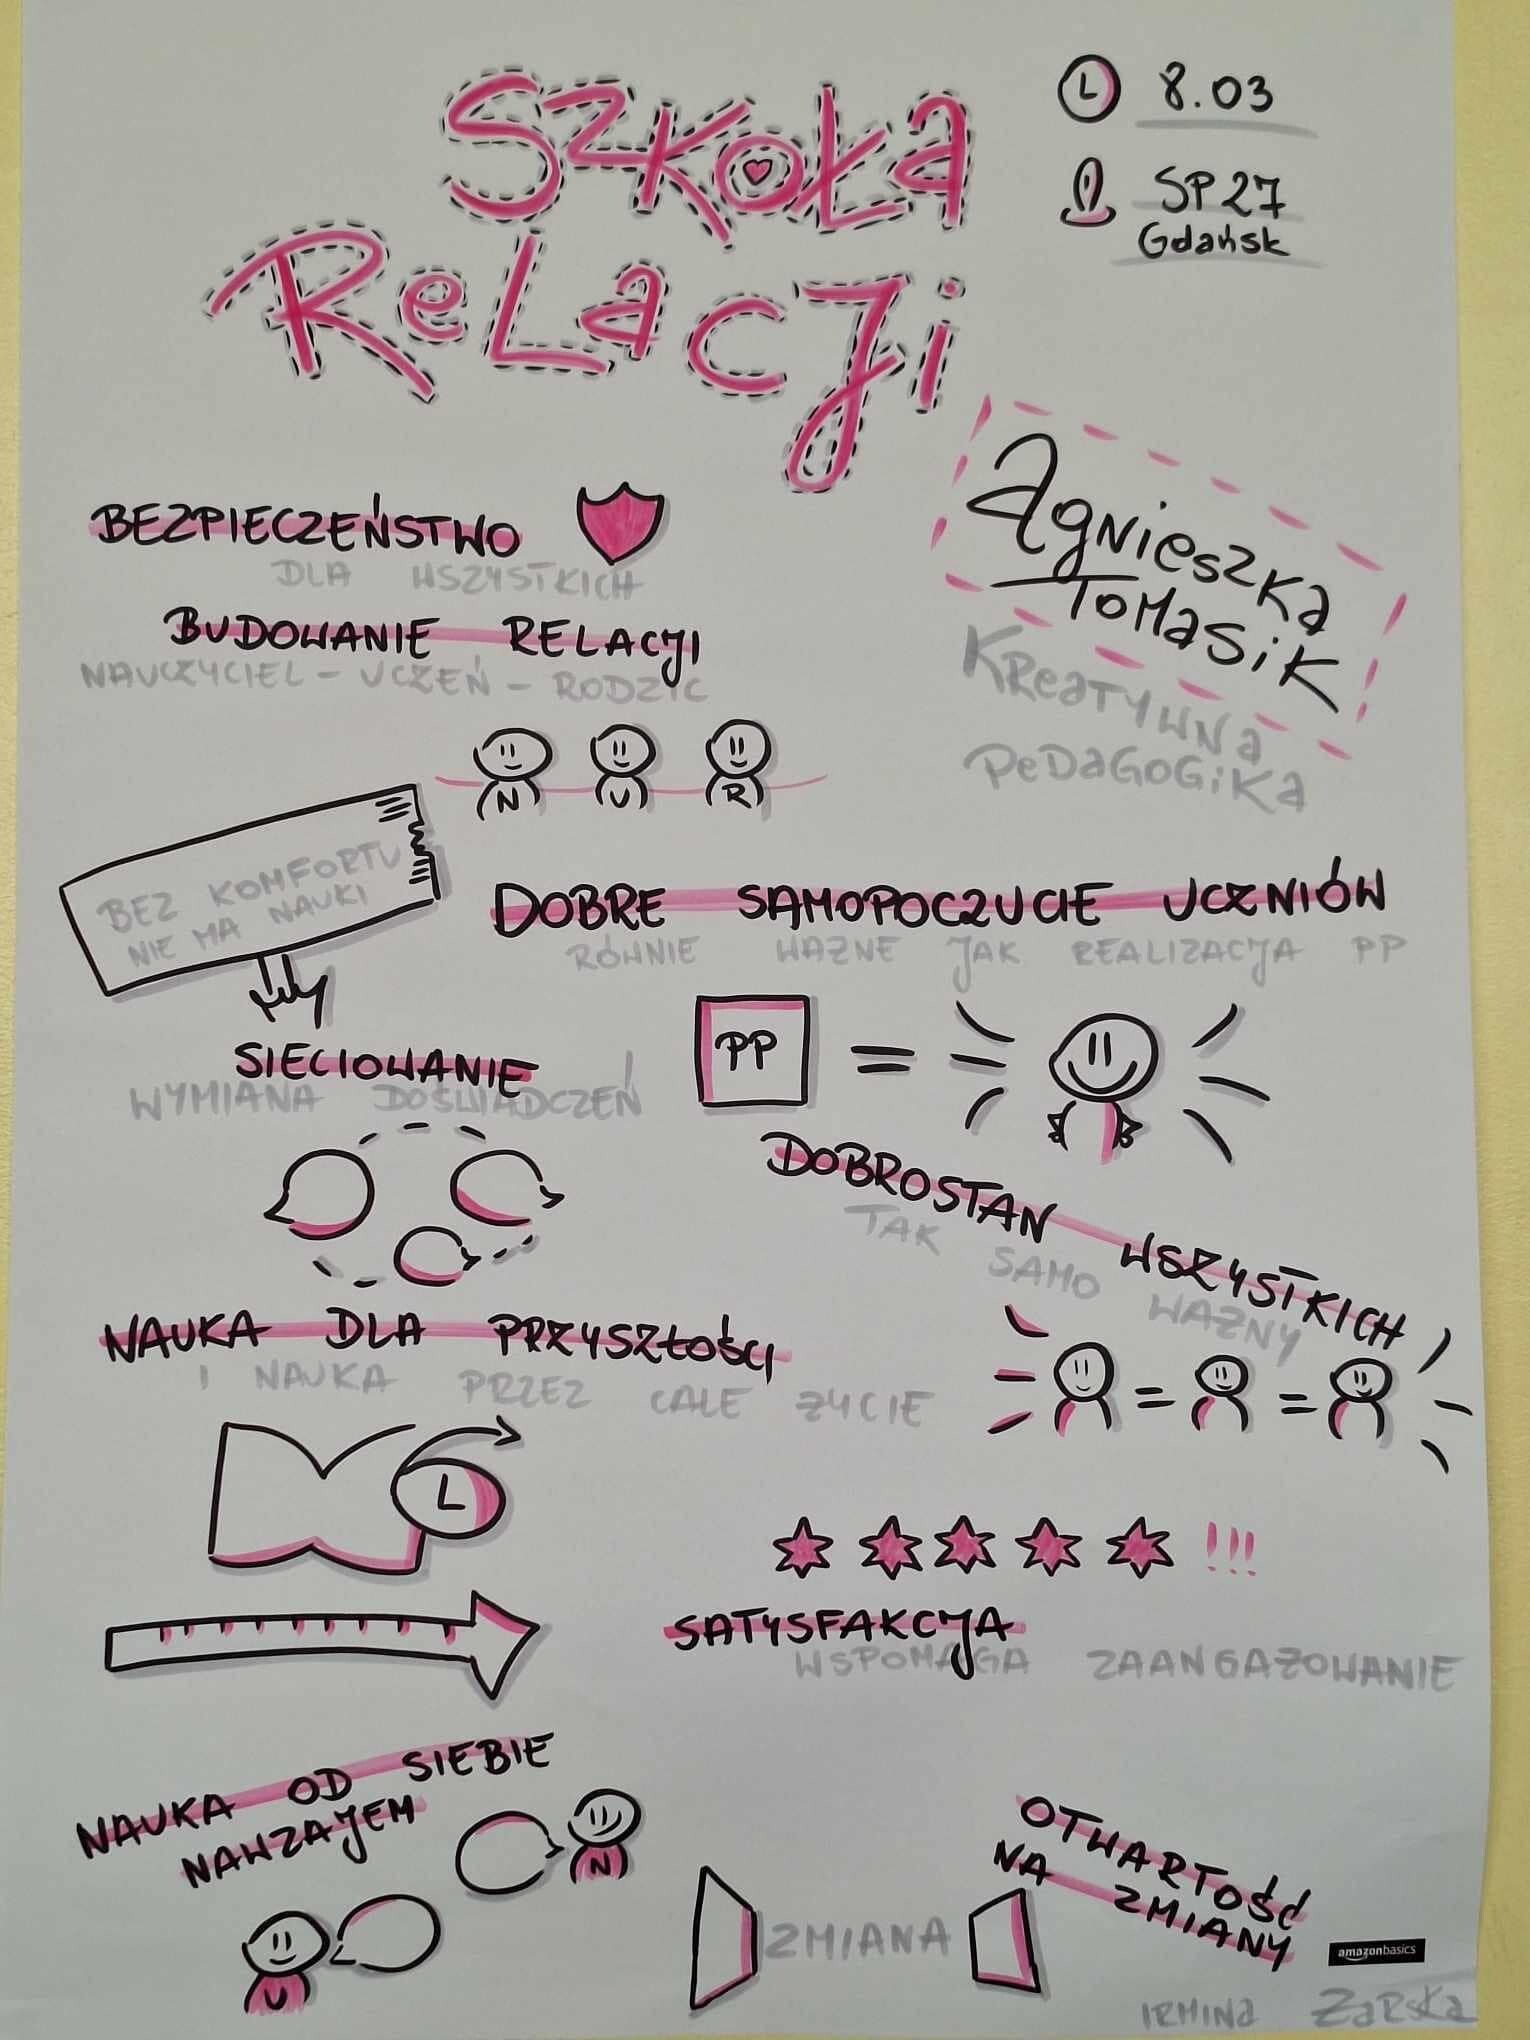 SZKOŁA
RELACJI
8.03
SP 27
Gdańsk
Agnieszka
Tomasik
KREATYWNA
PEDAGOGIKA
BEZPIECZEŃSTWO
DLA WSZYSTKICH
BUDOWANIE RELACJI
NAUCZYCIEL - UCZEŃ - RODZIC
N U R
BEZ KOMFORTU
NIE MA NAUKI
DOBRE SAMOPOCZUCIE UCZNIÓW
RÓWNIE WAŻNE JAK REALIZACJA PP
PP =
SIECIOWANIE
WYMIANA DOŚWIADCZEŃ
DOBROSTAN WSZYSTKICH
TAK SAMO WAŻNY
= =
NAUKA DLA PRZYSZŁOŚCI
I NAUKA PRZEZ CAŁE ŻYCIE
!!!
SATYSFAKCJA
WSPOMAGA ZAANGAŻOWANIE
NAUKA OD SIEBIE
NAWZAJEM
N
U
ZMIANA
OTWARTOŚĆ
NA ZMIANY
amazonbasics
IRMINA ŻARSKA